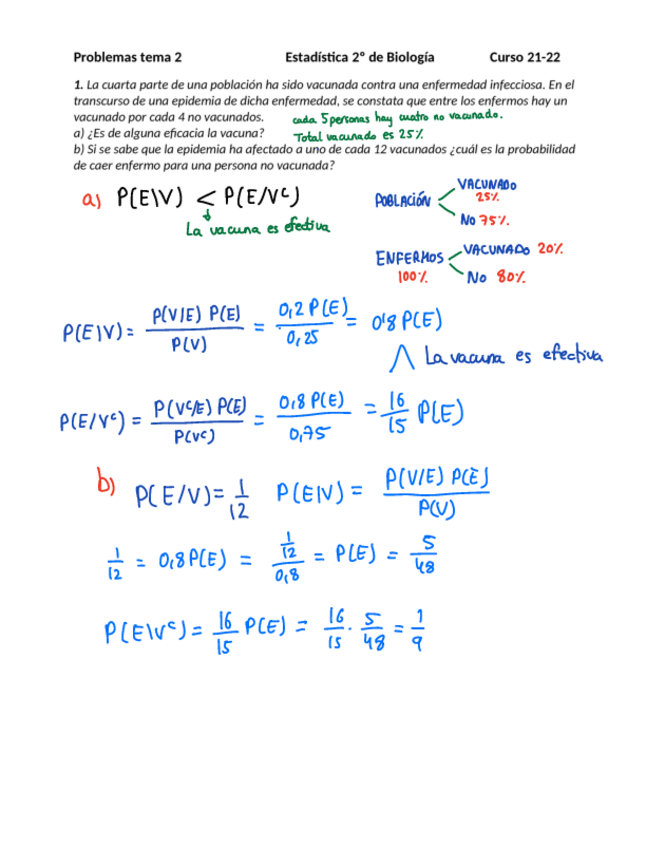 Problemas tema 2 Estadística 2º de Biología Curso 21-22
1. La cuarta parte de una población ha sido vacunada contra una enfermedad infecciosa. En el
transcurso de una epidemia de dicha enfermedad, se constata que entre los enfermos hay un
vacunado por cada 4 no vacunados. cada 5 personas hay cuatro no vacunado.
a) ¿Es de alguna eficacia la vacuna? Total vacunado es 25%
b) Si se sabe que la epidemia ha afectado a uno de cada 12 vacunados ¿cuál es la probabilidad
de caer enfermo para una persona no vacunada?
a) P(E\V) < P(E/Vᶜ)
↓
La vacuna es efectiva
POBLACIÓN
VACUNADO
25%
No 75%.
ENFERMOS
100%
VACUNADO 20%
No 80%
P(E\V) = P(V/E) P(E) / P(V) = 0,2 P(E) / 0,25 = 0'8 P(E)
⋀ La vacuna es efectiva
P(E/Vᶜ) = P(Vᶜ/E) P(E) / P(Vᶜ) = 0,8 P(E) / 0,75 = 16/15 P(E)
b) P(E/V) = 1/12 P(E|V) = P(V/E) P(E) / P(V)
1/12 = 0,8 P(E) = 1/12 / 0,8 = P(E) = 5/48
P(E\Vᶜ) = 16/15 P(E) = 16/15 · 5/48 = 1/9